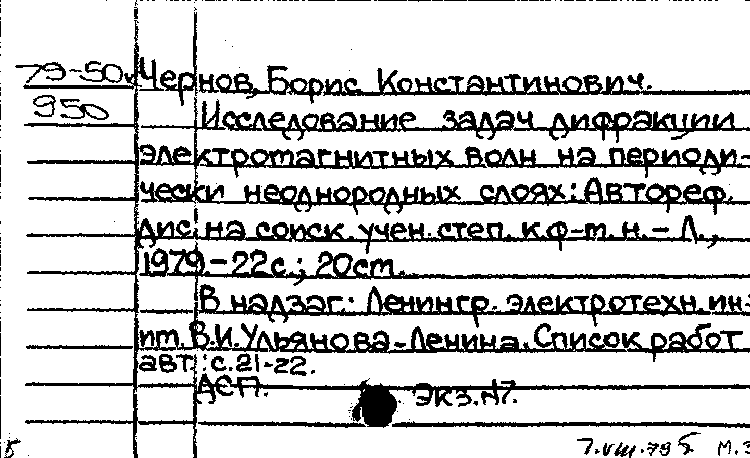 79-50
950
Чернов, Борис Константинович.
Исследование задач дифракции
электромагнитных волн на периоди-
чески неоднородных слоях: Автореф.
дис. на соиск. учен. степ. к.ф-т.н. - Л.,
1979 - 22с.; 20см.
В надзаг.: Ленингр. электротехн. ин-
т В.И. Ульянова-Ленина. Список работ
авт.: с. 21-22.
ДСП. Экз. №7.
7.VIII.79 М.